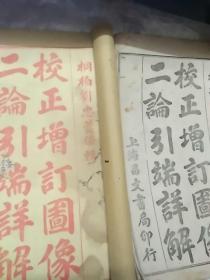 桐柏劉
校正增訂圖像
二論引端詳解
校正增訂圖像
二論引端詳解
上海昌文書局印行